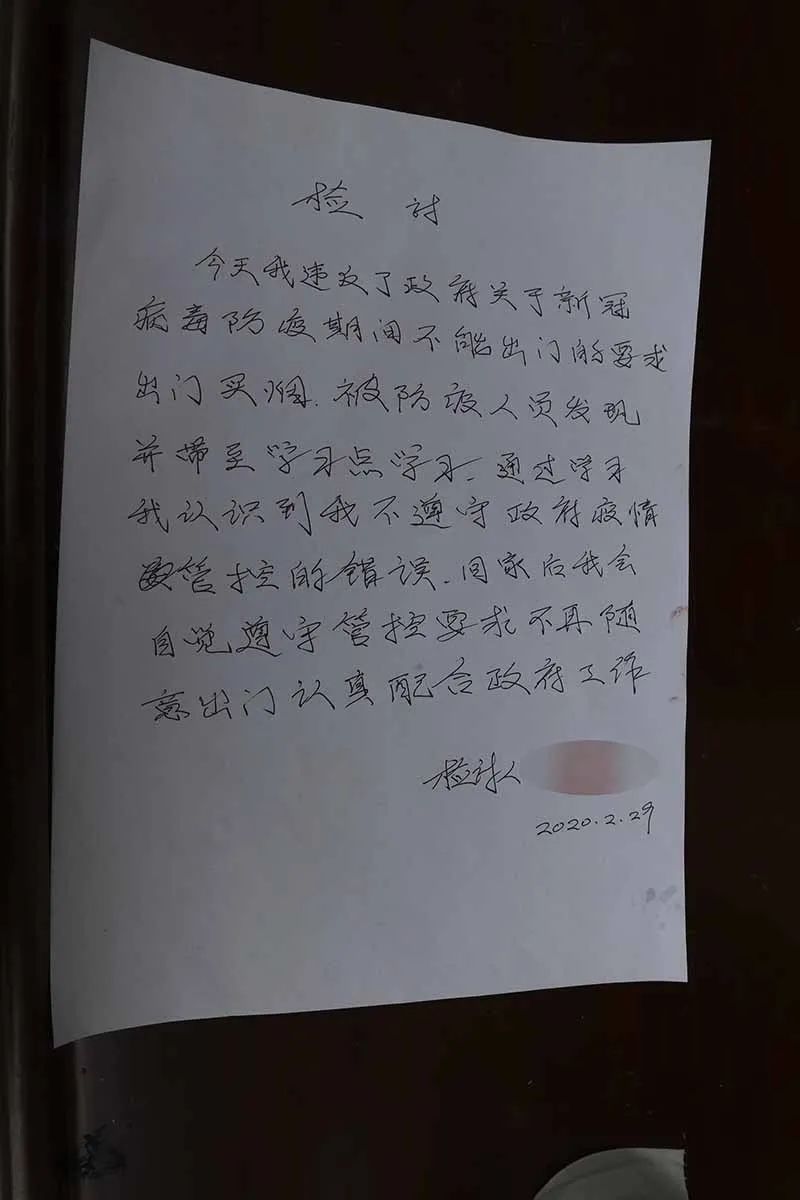 检讨
今天我违反了政府关于新冠
病毒防疫期间不能出门的要求
出门买烟.被防疫人员发现
并带至学习点学习.通过学习
我认识到我不遵守政府疫情
管控的错误.回家后我会
自觉遵守管控要求不再随
意出门认真配合政府工作
检讨人
2020.2.29